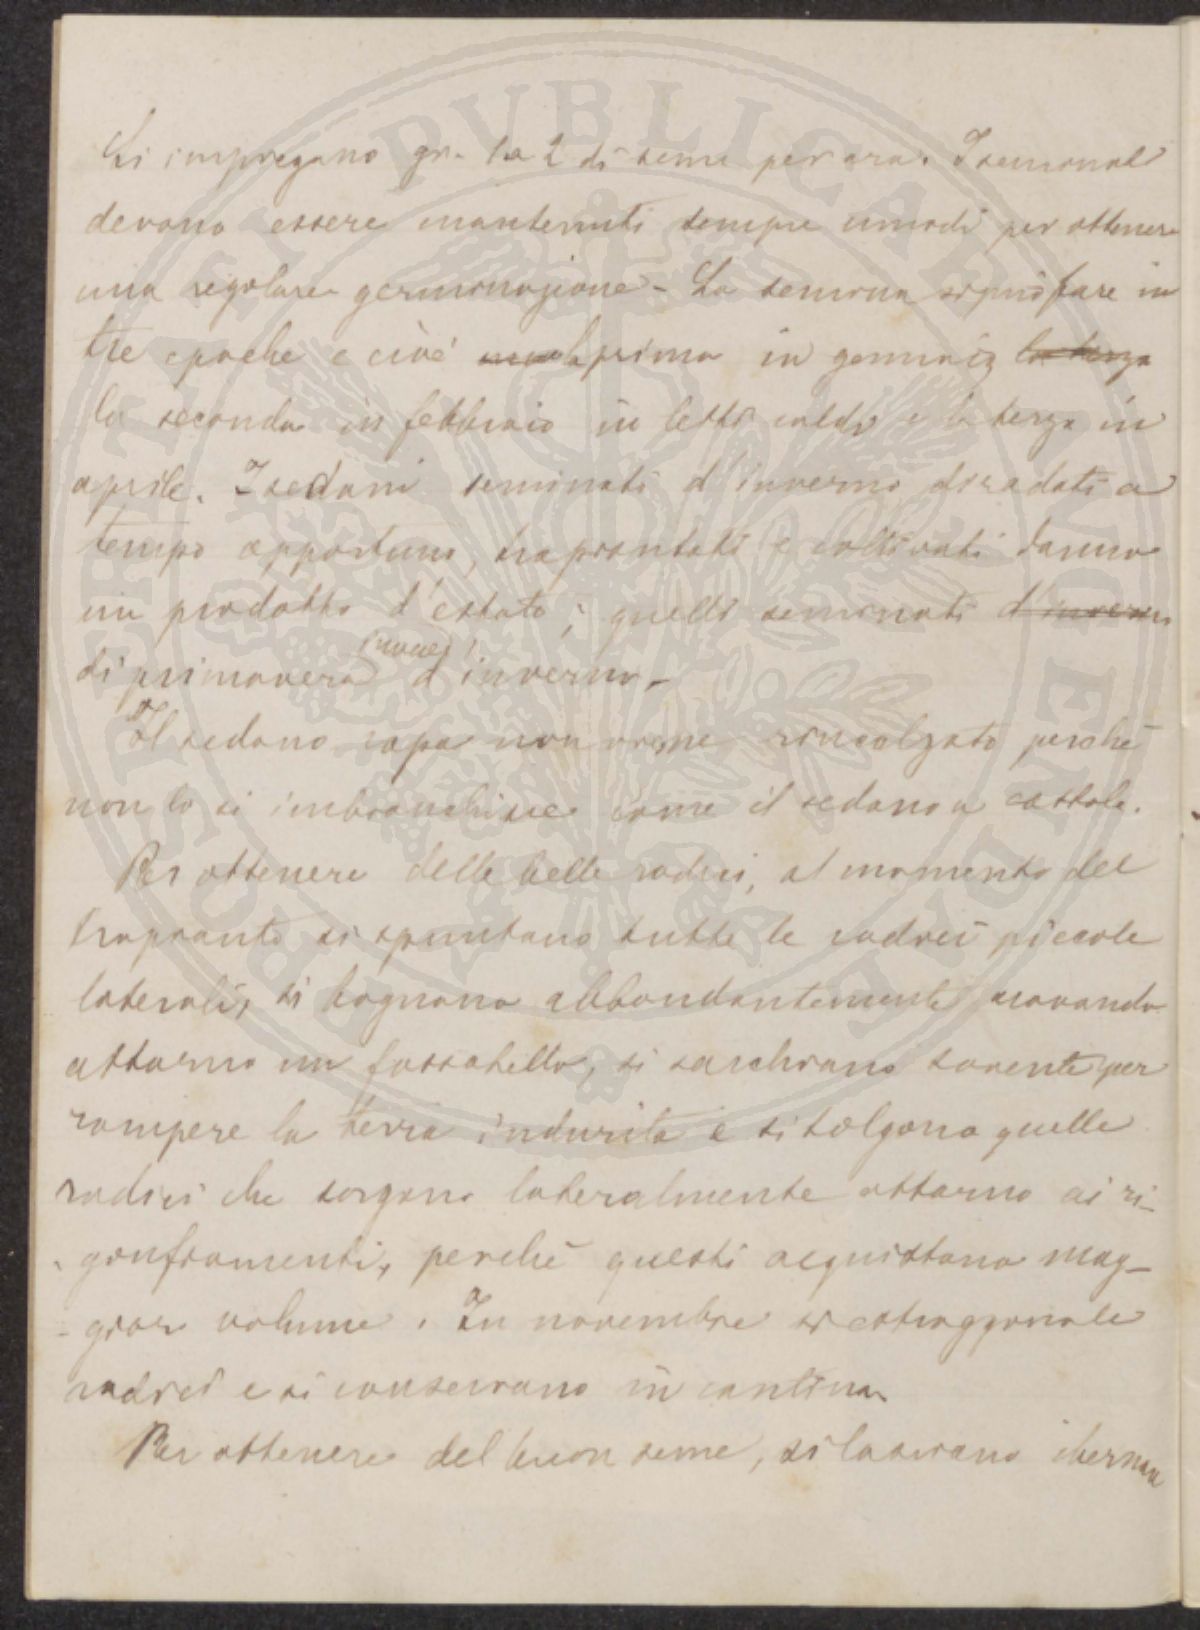 Si impiegano gr. 1 a 2 di seme per ara. I semenzali
devono essere mantenuti sempre umidi per ottenere
una regolare germinazione - La semina si può fare in
tre epoche e cioè la prima in gennaio, la terza
la seconda in febbraio in letti caldi e la terza in
aprile. I sedani seminati d'inverno diradati a
tempo opportuno, trapiantati e coltivati danno
un prodotto d'estate; quelli seminati d'inverno
di primavera (invece) d'inverno. -
Il sedano rapa non viene rincalzato perchè
non lo si imbianchisce come il sedano a costole.
Per ottenere delle belle radici, al momento del
trapianto si spuntano tutte le radici piccole
laterali, si bagnano abbondantemente scavando
attorno un fossatello, si sarchiano sovente per
rompere la terra indurita e si tolgono quelle
radici che sorgono lateralmente attorno ai ri-
gonfiamenti, perchè questi acquistano mag-
- gior volume. In novembre si estraggono le
radici e si conservano in cantina.
Per ottenere del buon seme, si lasciano
POSTERITATI PVBLICAE AVGENDAE